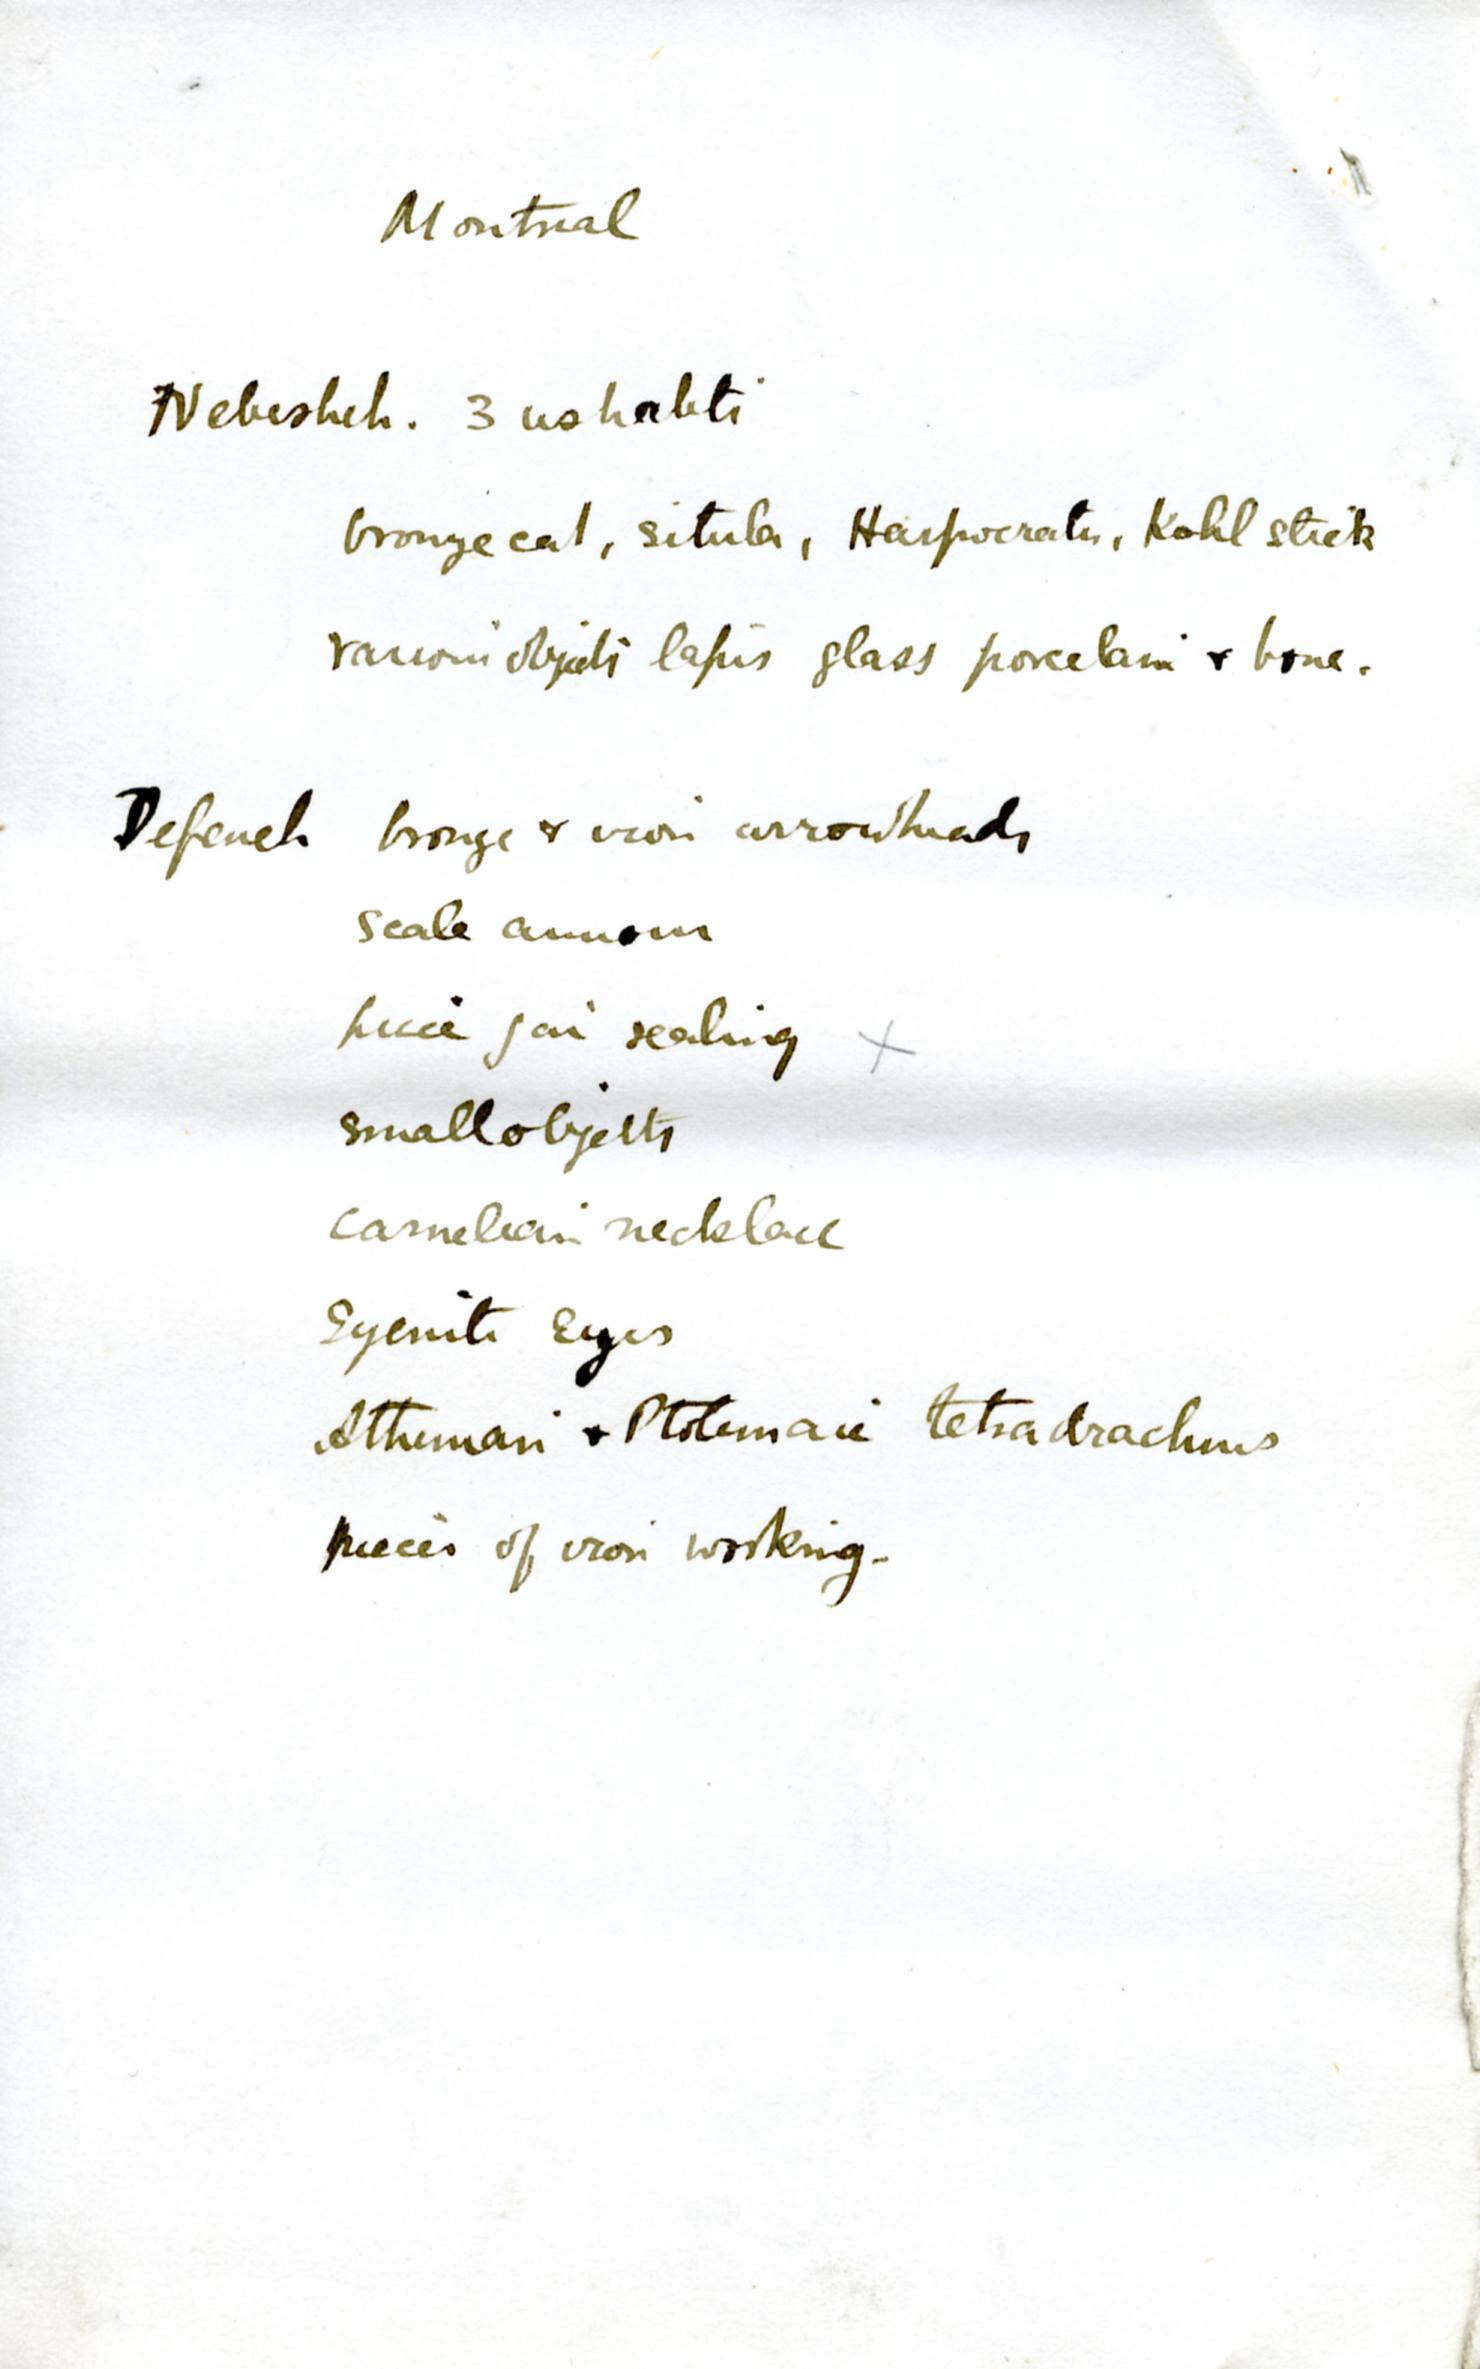 Montreal
Nebesheh. 3 ushabti
bronze cat, situla, Harpocrates, Kohl stick
various objects lapis glass porcelain & bone.
Defeneh bronze & iron arrowheads
scale armour
piece jar sealing x
small objects
carnelian necklace
Syenite Eyes
Athenian & Ptolemaic tetradrachms
pieces of iron working.